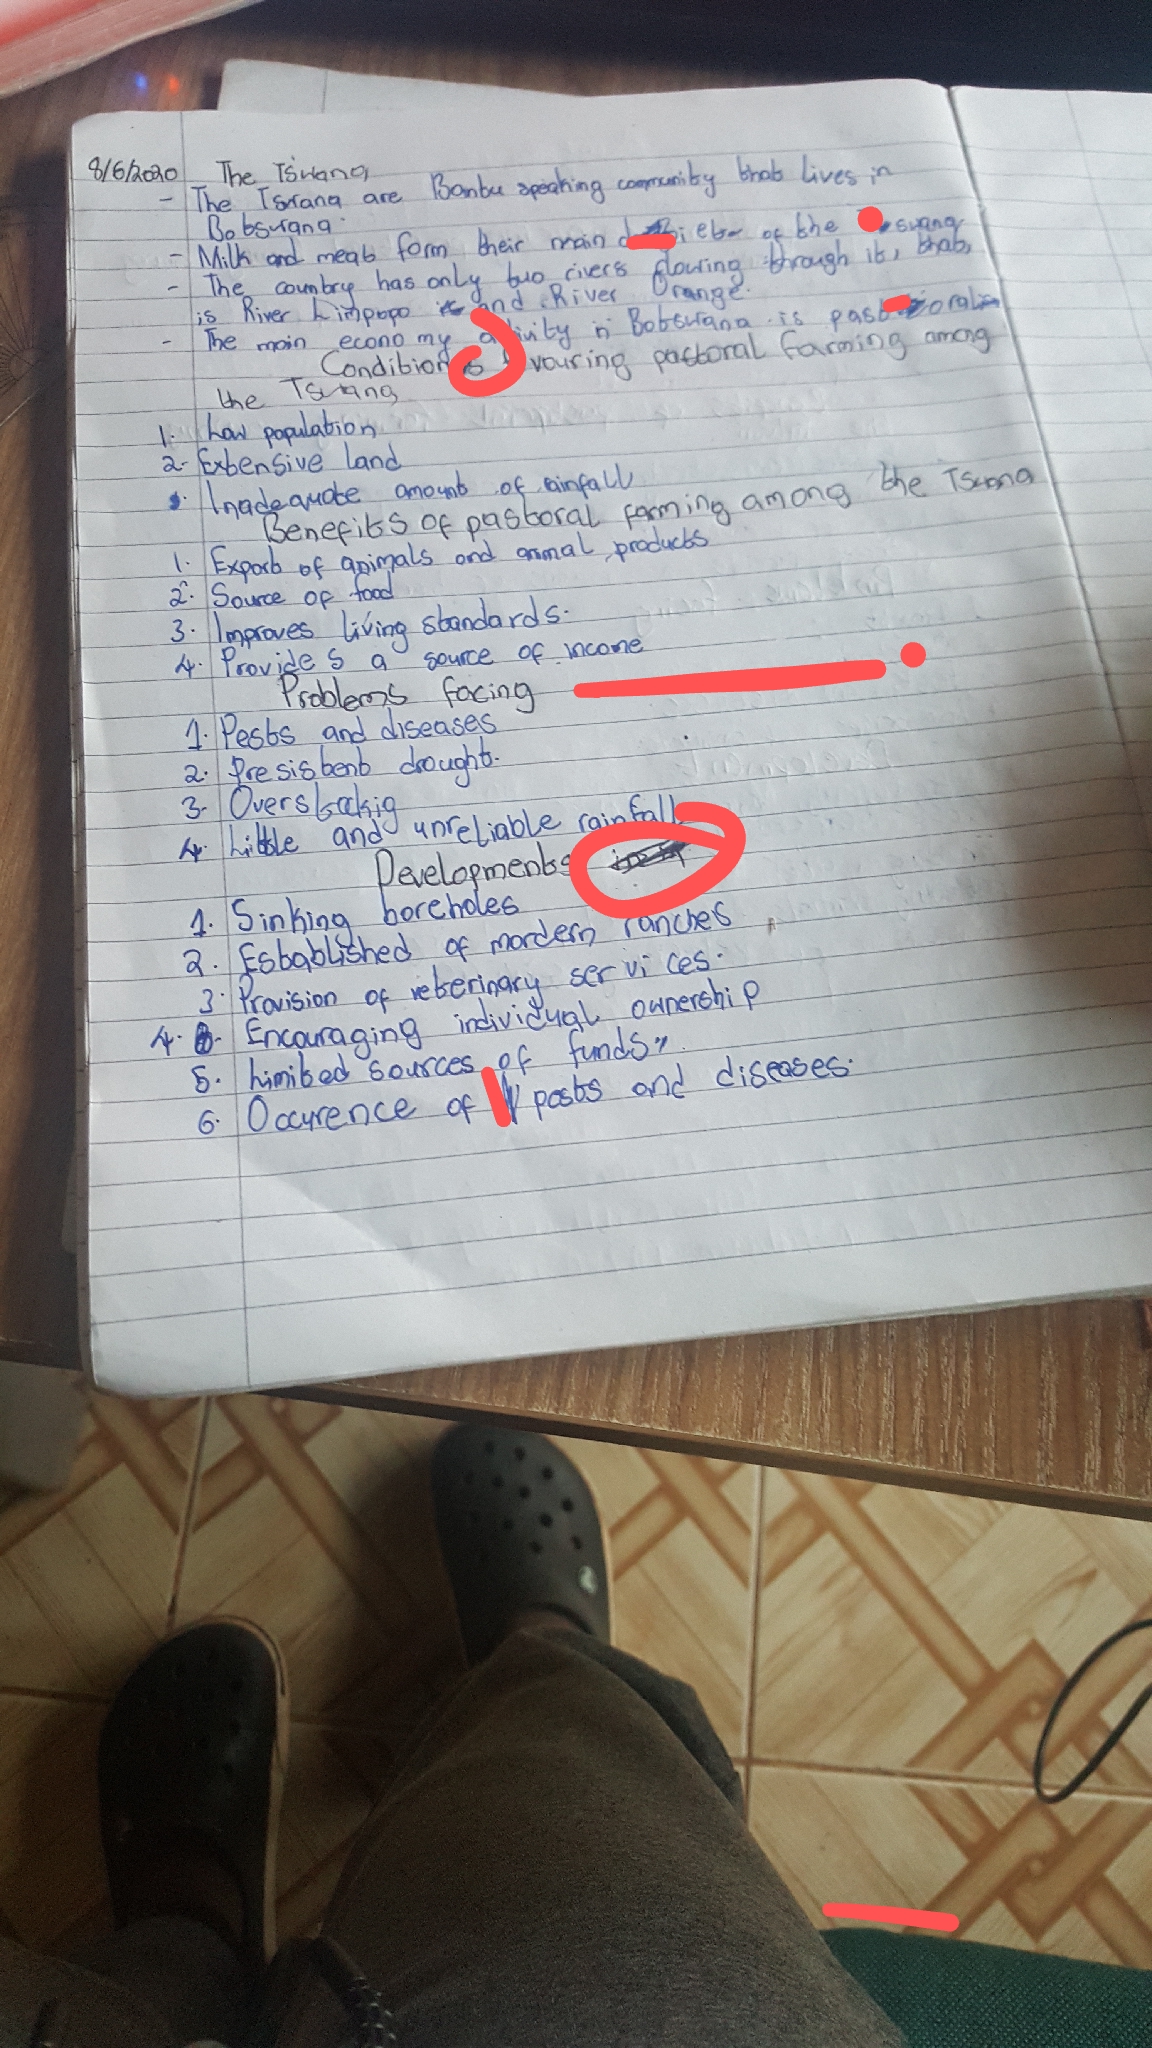 8/6/2020 The Tswana
- The Tswana are Bantu speaking community that lives in
Botswana.
- Milk and meat form their main diet of the Tswana
- The country has only two rivers flowing through it, that
is River Limpopo and River Orange.
- The main economy activity in Botswana is pastoralism
Conditions favouring pastoral farming among
the Tswana
1. Low population
2. Extensive land
3. Inadequate amount of rainfall
Benefits of pastoral farming among the Tswana
1. Export of animals and animal products
2. Source of food
3. Improves living standards.
4. Provides a source of income
Problems facing
1. Pests and diseases
2. Presistent drought.
3. Overstockig
4. Little and unreliable rainfall
Developments
1. Sinking boreholes
2. Established of mordern ranches
3. Provision of veterinary services.
4. Encouraging individual ownership
5. Limited sources of funds
6. Occurence of pests and diseases.